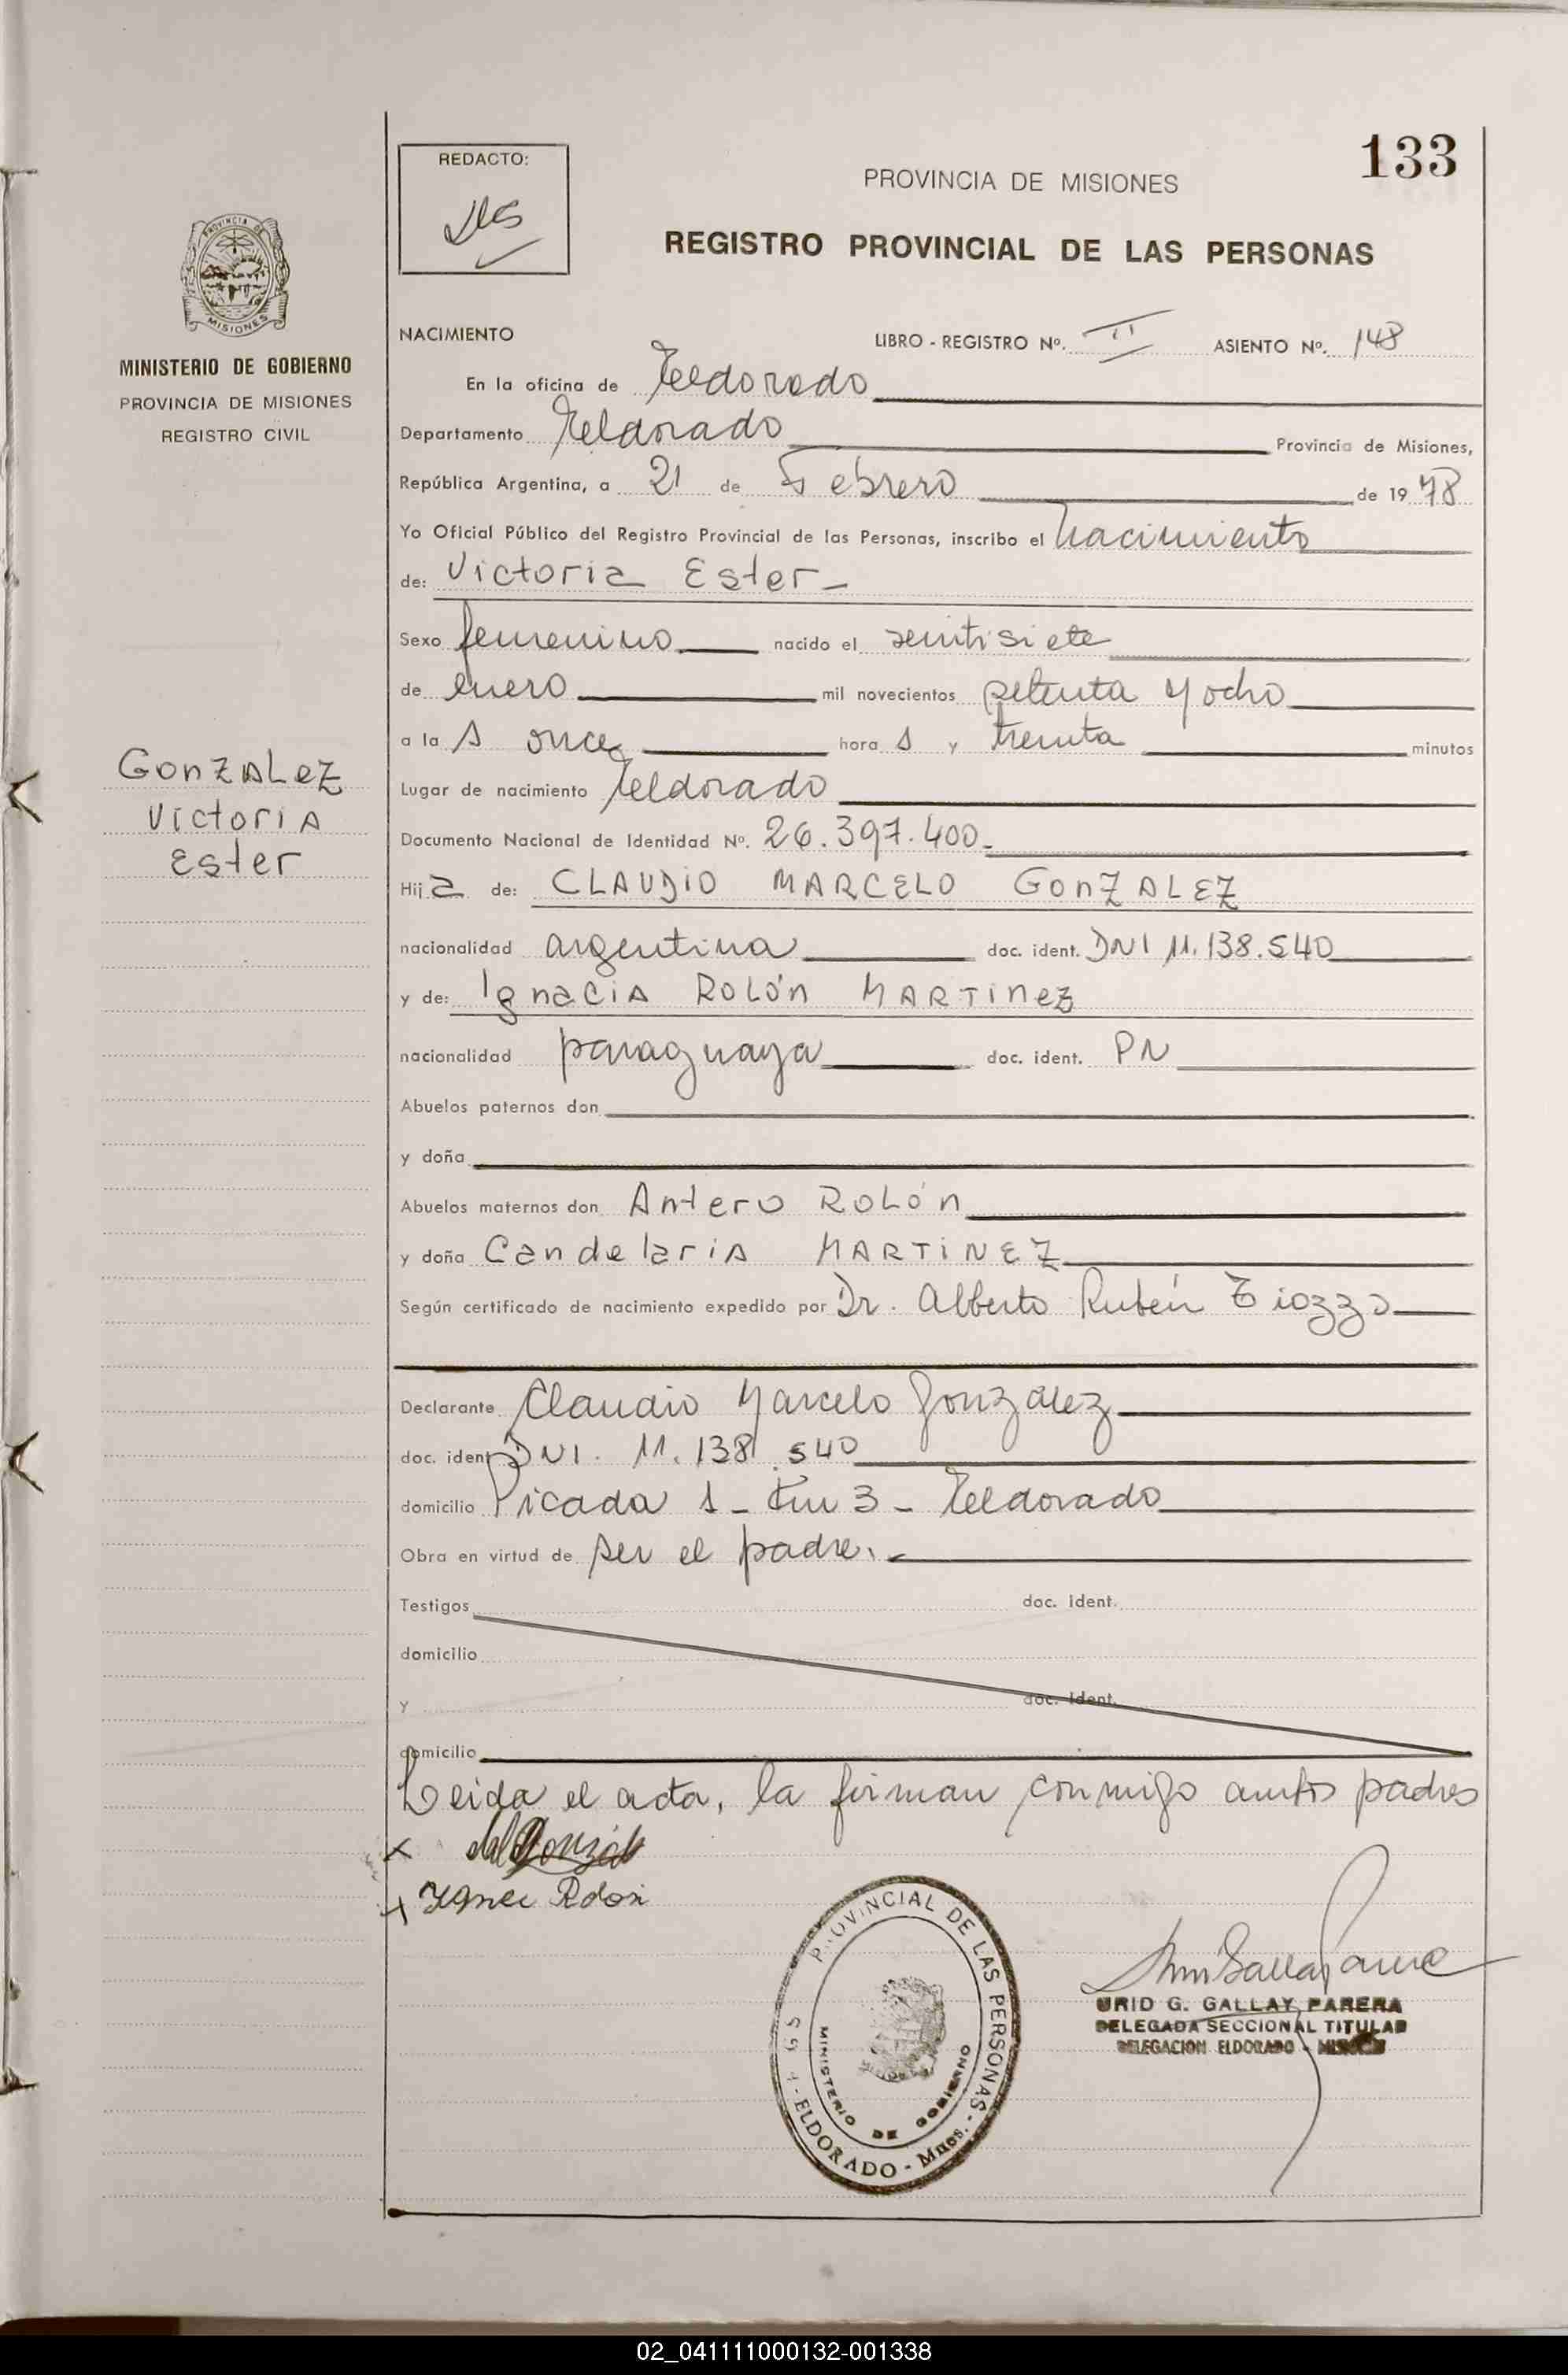 133
REDACTO:
PROVINCIA DE MISIONES
REGISTRO PROVINCIAL DE LAS PERSONAS
PROVINCIA DE
MISIONES
MINISTERIO DE GOBIERNO
PROVINCIA DE MISIONES
REGISTRO CIVIL
GonZALeZ
Victoria
Ester
NACIMIENTO LIBRO - REGISTRO Nº. II ASIENTO Nº. 148
En la oficina de Eldorado
Departamento Eldorado Provincia de Misiones,
República Argentina, a 21 de Febrero de 19 78
Yo Oficial Público del Registro Provincial de las Personas, inscribo el nacimiento
de: Victoria Ester
Sexo femenino nacido el veintisiete
de enero mil novecientos setenta y ocho
a la s once hora s y treinta minutos
Lugar de nacimiento Eldorado
Documento Nacional de Identidad Nº. 26.397.400
Hij a de: CLAUDIO MARCELO GonZALEZ
nacionalidad argentina doc. ident. DNI 11.138.540
y de: IgnaciA ROLÓn MARTineZ
nacionalidad paraguaya doc. ident. PN
Abuelos paternos don
y doña
Abuelos maternos don Antero ROLón
y doña CandelariA MARTiNEZ
Según certificado de nacimiento expedido por Dr. Alberto Rubén Tiozzo
Declarante Claudio Marcelo González
doc. ident DNI. 11.138.540
domicilio Picada 1 - Km 3 - Eldorado
Obra en virtud de ser el padre.
Testigos doc. ident.
domicilio
y doc. ident.
domicilio
Leida el acta, la firman conmigo ambos padres
x
x Rolon
PROVINCIAL DE LAS PERSONAS
ELDORADO - Mnes.
MINISTERIO DE GOBIERNO
URID G. GALLAY PARERA
DELEGADA SECCIONAL TITULAR
DELEGACION ELDORADO - MISIONES
02_041111000132-001338